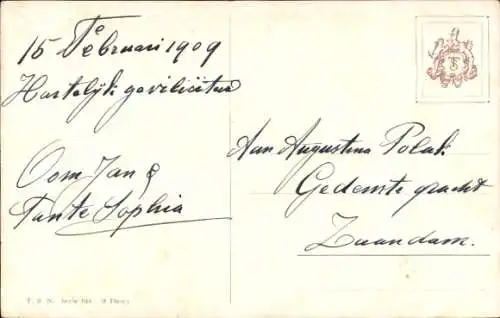 15 Februari 1909
Hartelijk geviliciteer
Oom Jan &
Tante Sophia
Aan Augustina Polak
Gedemste gracht
Zaandam.
T. S. N. Serie